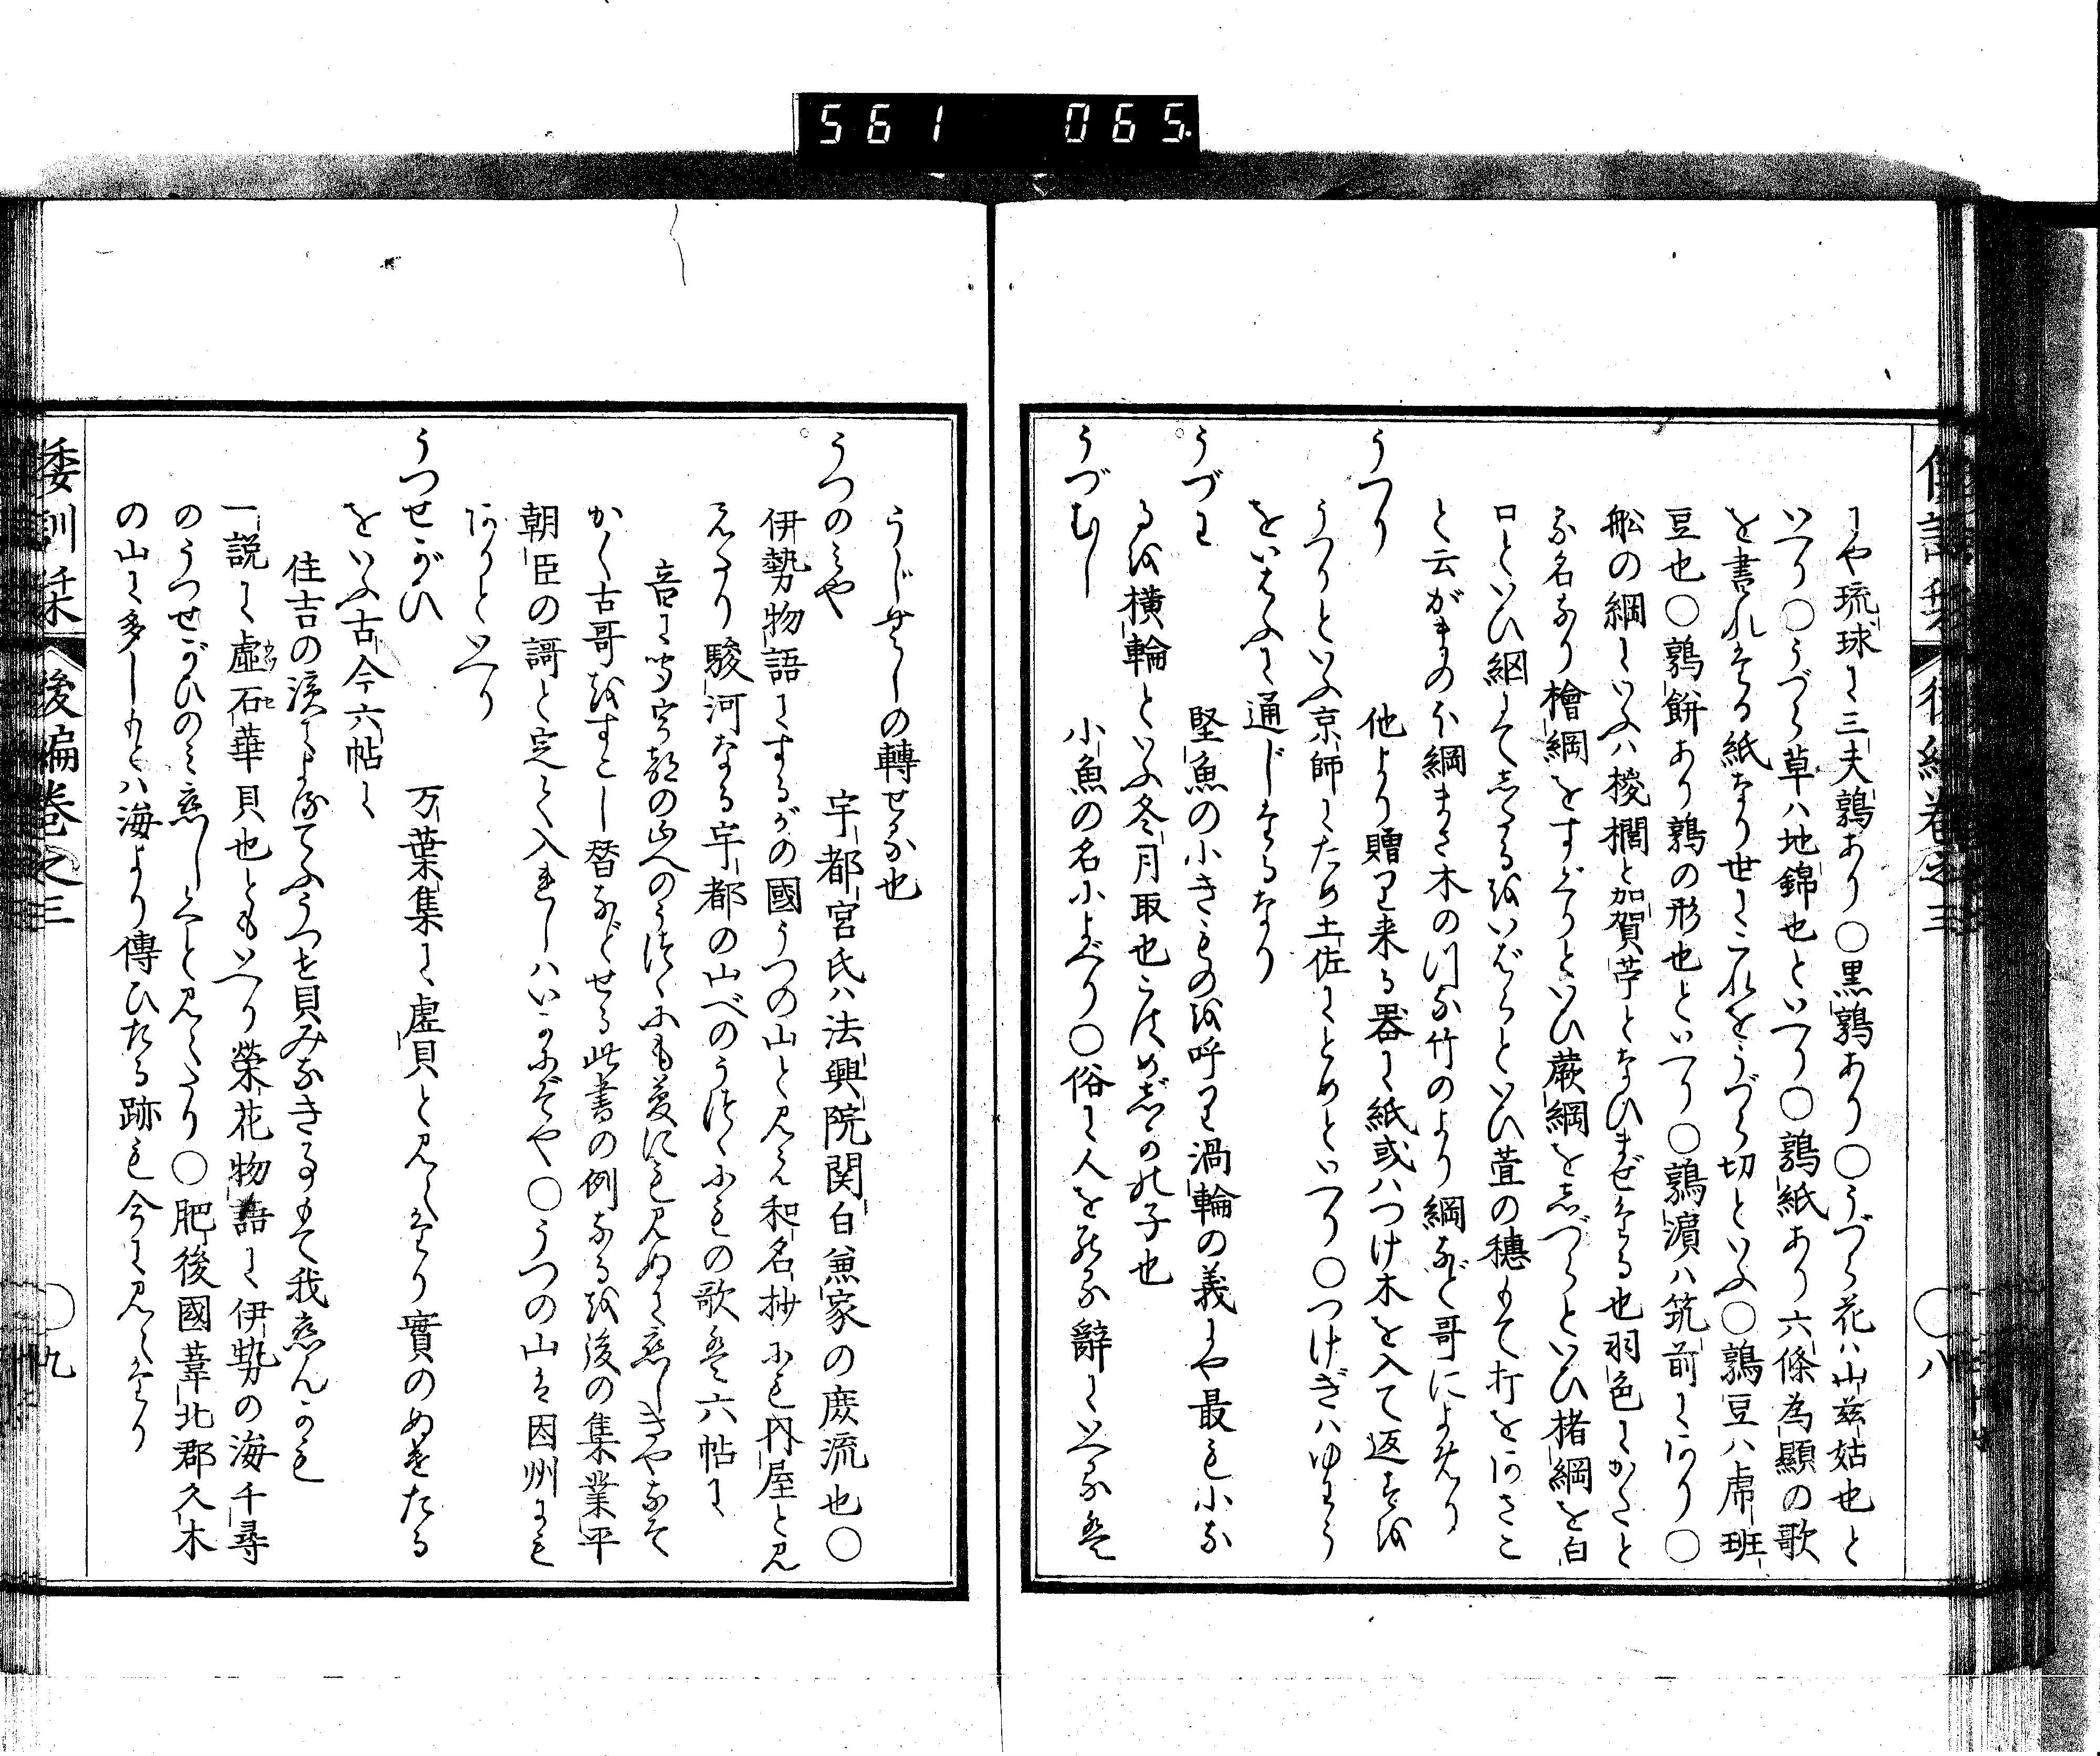 561 065
倭訓栞 後編巻之三 ○八
にや琉球に三夫鶉あり○黒鶉あり○うづら花ハ山茲姑也と
いへり○うづら草ハ地錦也といへり○鶉紙あり六條為顯の歌
を書れたる紙なり世にこれをうづら切といふ○鶉豆ハ虎班
豆也○鶉餅あり鶉の形也といへり○鶉濵ハ筑前にあり○
舩の綱にいふハ椶櫚と加賀苧となひまぜたる也羽色にかたと
る名なり檜綱をすべりといひ蕨綱をしづらといひ楮綱を白
口といひ綱にてしたるをいばらといひ萱の穂もて打をあさこ
と云がまのほ綱まさ木のつな竹のより綱など哥によめり
うつり 他より贈り来る器に紙或ハつけ木を入て返すを
うつりといふ京師にため土佐にとめといへり○つけぎハゆわう
をいはふに通じたるなり
うづわ 堅魚の小きものを呼り渦輪の義にや最も小な
るを横輪といふ冬月取也こはめじかの子也
うづむし 小魚の名によべり○俗に人を辭にいへるは
うじむしの轉せる也
うつのみや 宇都宮氏ハ法興院関白兼家の庶流也○
伊勢物語にするがの國うつの山と見え和名抄にも内屋と見
えたり駿河なる宇都の山べのうつゝにもの歌は六帖に
音に聞宇都の山へのうつゝにも夢にも見ぬに恋しきやなそ
かく古哥をすこし替などせる此書の例なるを後の集業平
朝臣の謌と定て入れしハいかにぞや○うつの山は因州にも
ありといへり
うつせがひ 万葉集に虚貝と見えたり實のぬけたる
をいふ古今六帖に
住吉の濱によるてふうつせ貝みなきこともて我恋んかも
一説に虚石華貝也ともいへり榮花物語に伊勢の海千尋
のうつせがひのミ恋しくと見えたり○肥後國葦北郡久木
の山に多しもとハ海より傳ひたる跡も今に見えたり
倭訓栞 後編巻之三 ○九